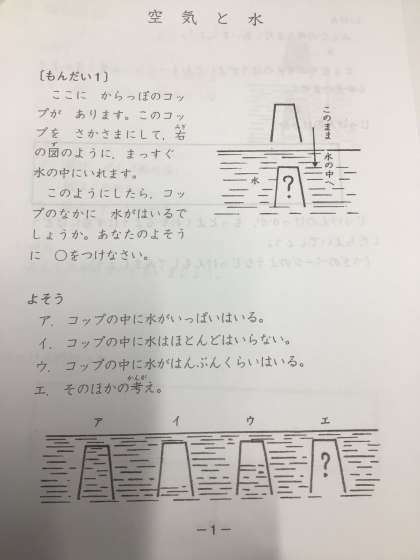 空気と水
〔もんだい1〕
ここに からっぽのコッ
プが あります。このコッ
プを さかさまにして、右
の図のように、まっすぐ
水の中にいれます。
このようにしたら、コッ
プのなかに 水がはいるで
しょうか。あなたのよそう
に ○をつけなさい。
このまま
水の中へ
水
?
よそう
ア. コップの中に水がいっぱいはいる。
イ. コップの中に水はほとんどはいらない。
ウ. コップの中に水がはんぶんくらいはいる。
エ. そのほかの考え。
ア イ ウ エ
?
－1－